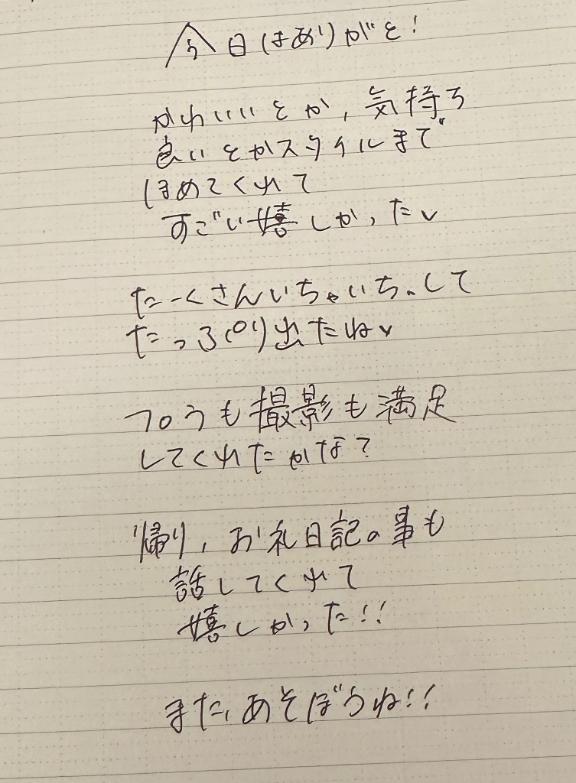 今日はありがと!
かわいいとか、気持ち
良いとかスタイルまで
ほめてくれて
すごい嬉しかった✓
たーくさんいちゃいちゃして
たっぷり出たね✓
も撮影も満足
してくれたかな?
帰り、お礼日記の事も
話してくれて
嬉しかった!!
また、あそぼうね!!